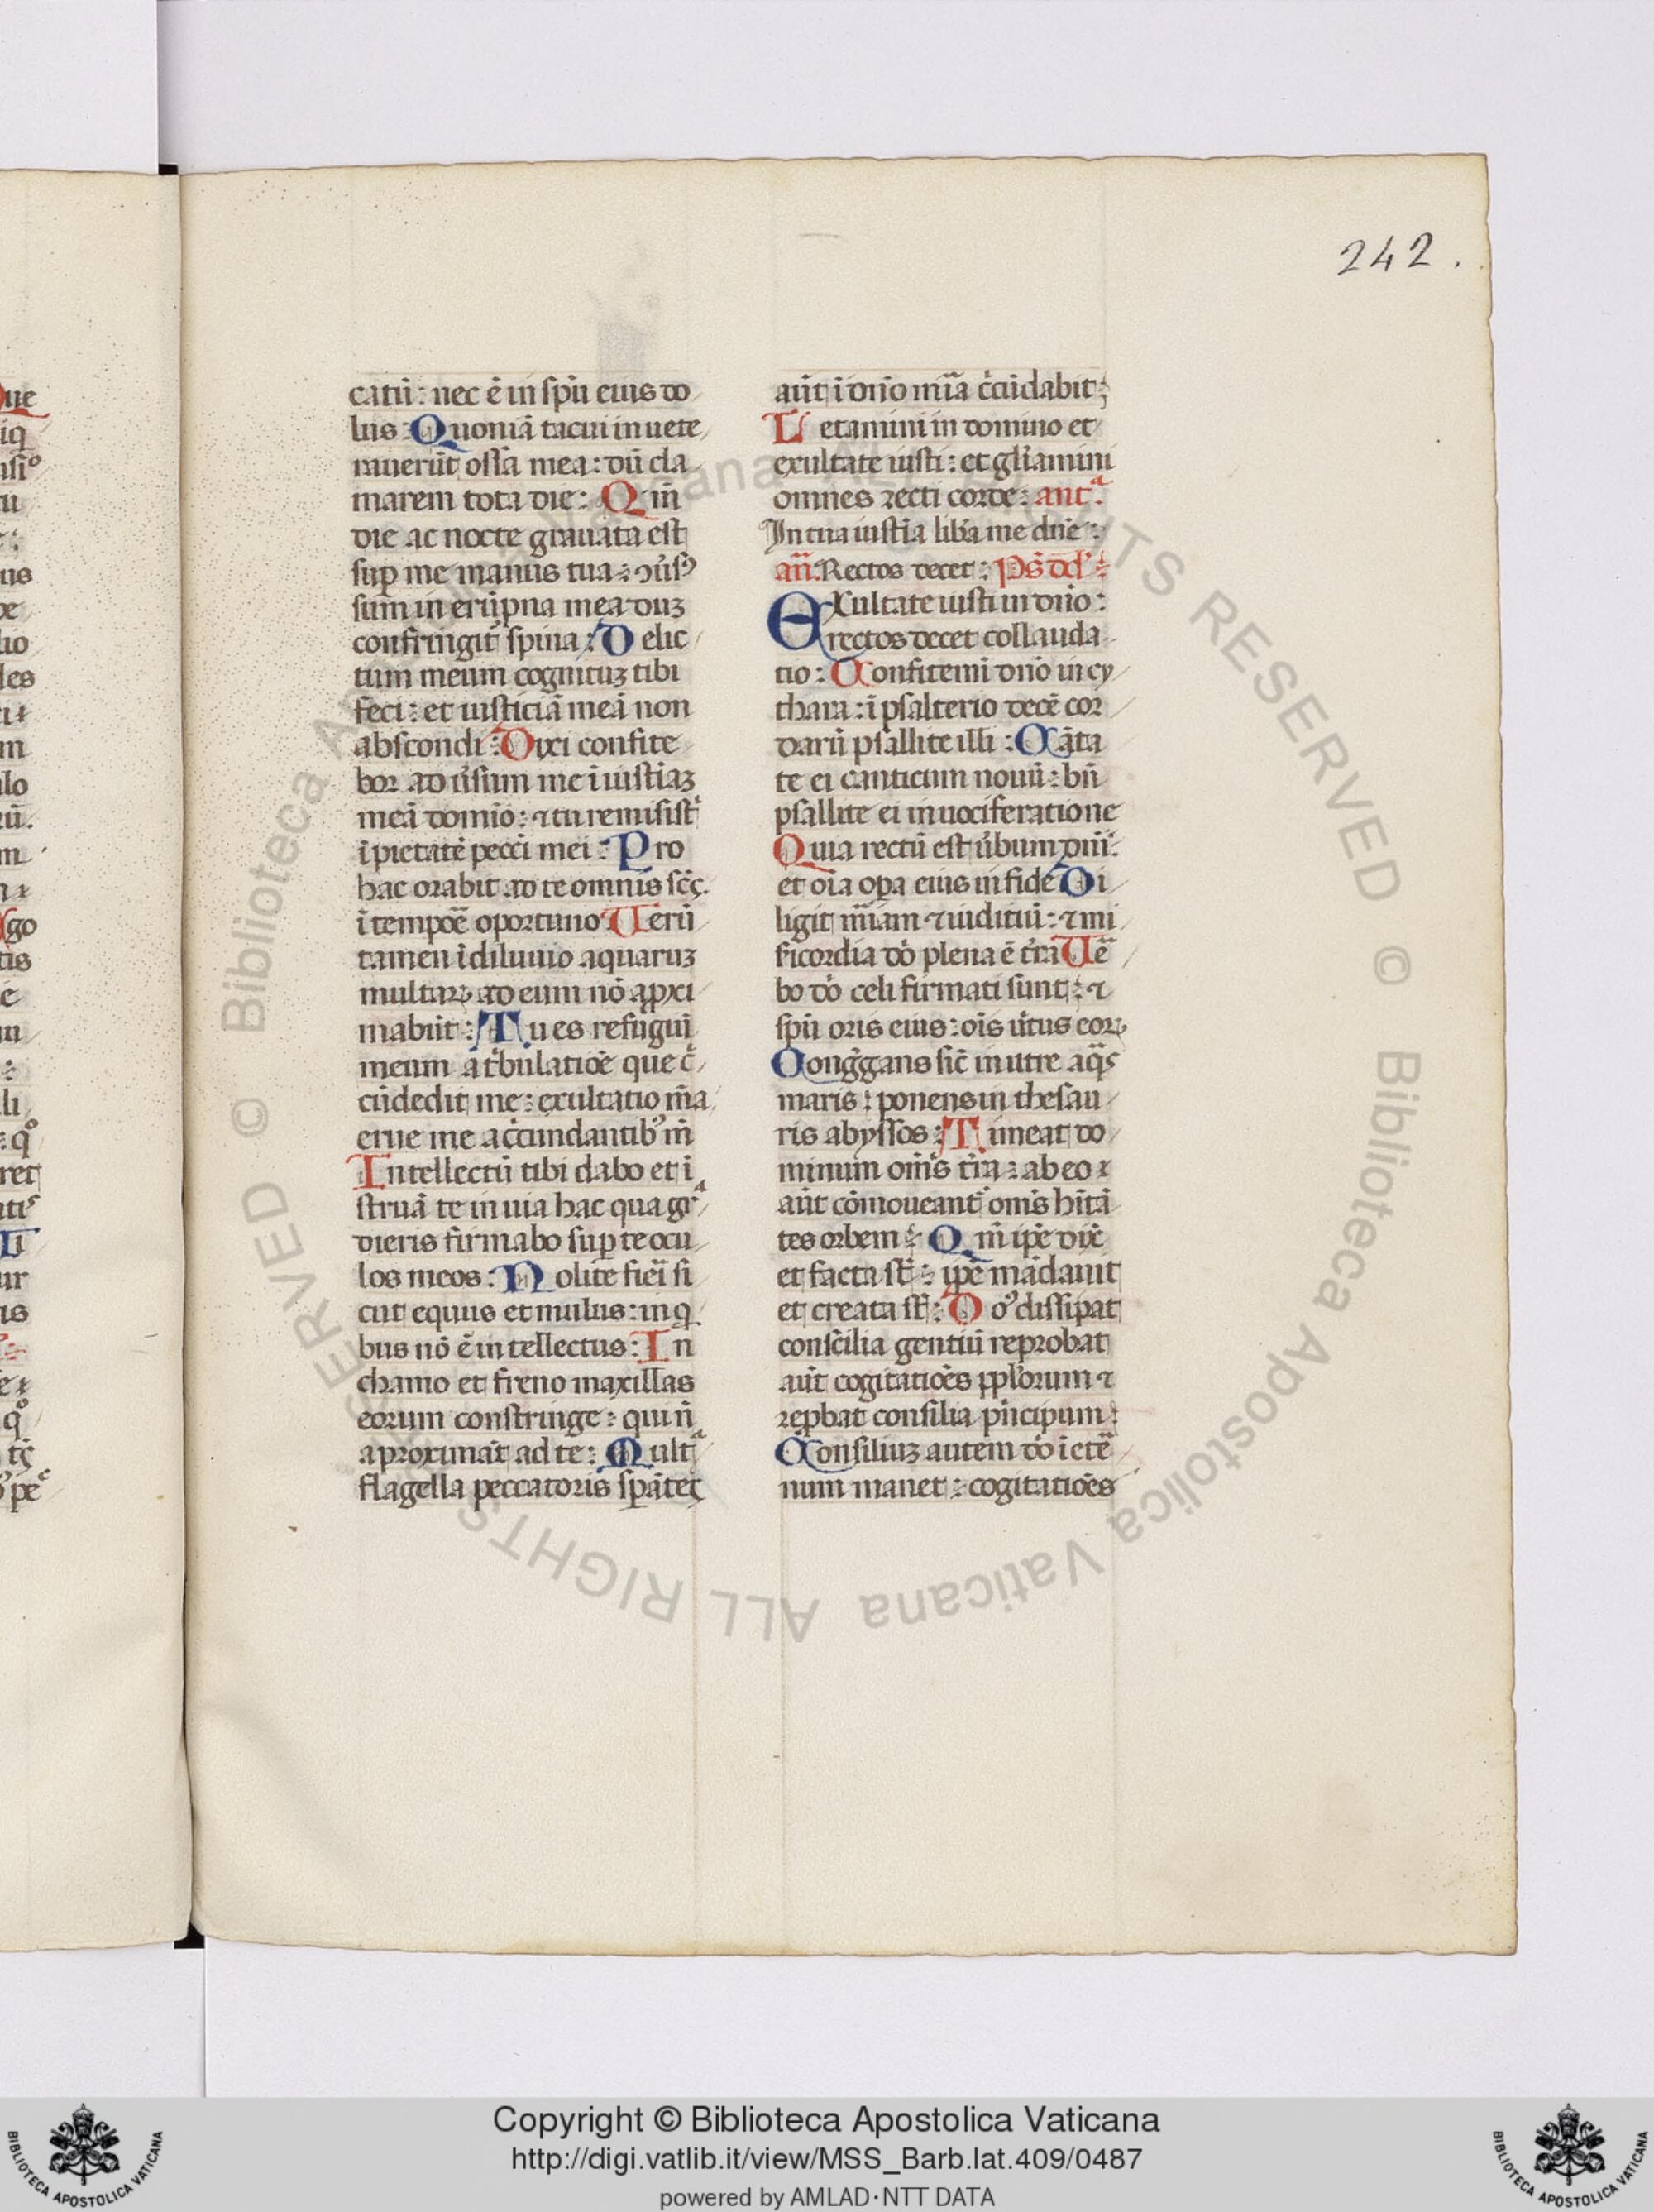 242.
catū: nec ē in spū eius do
lus: Quoniā tacui inuete
rauerūt ossa mea: dū cla
marem tota die: Qm̄
die ac nocte grauata est
sup me manus tua: ɔūsꝰ
sum in erūpna mea duz
confringit᷑ spina: Delic
tum meum cognituz tibi
feci: et iusticiā meā non
abscondi: Dixi confite
bor aduṡum me īiustiaz
meā domīo: ⁊ tu remisist
īpietatē pecc̄i mei: Pro
hac orabit ad te omnis sc̄s
ī tempoē oportuno Uerū
tamen ī diluuio aquaruz
multaꝝ ad eum nō apxi
mabūt: Tu es refugiū
meum a tbulatiōe que c̄
cūdedit me: exultatio m̄a
erue me a c̄cundantibꝰ m̄
Intellectū tibi dabo et ī
struā te in uia hac qua gr
dieris firmabo sup te ocu
los meos: Nolite fiei si
cut equus et mulus: in q
bus nō ē in tellectus: In
chamo et freno maxillas
eorum constringe: qui n̄
aproximāt ad te: Mult
flagella peccatoris spātes
aūt ī dno mīa c̄cūdabit;
Letamini in domino et
exultate iusti: et gl̄iamini
omnes recti corde: ant.
In tua iustia liba me dn̄e:
an̄. Rectos decet: Ps dd
Exultate iusti in dn̄o:
rectos decet collauda
tio: Confitemi dn̄o in cy
thara: ī psalterio decē cor
darū psallite illi: Cāta
te ei canticum nouū: bn̄
psallite ei in uociferatione
Quia rectū est ūbum dn̄i:
et oīa opa eius in fide Di
ligit mīam ⁊ iuditiū: ⁊ mi
sicordia dō plena ē tra Ue
bo dō celi firmati sunt: ⁊
spū oris eius: oīs utus eoꝝ
Conggans sic̄ in utre aqs
maris: ponens in thesau
ris abyssos: Timeat do
minum om̄s tra: ab eo
aūt cōmoueant om̄s hītā
tes orbem: Qm̄ ipe dix̄
et facta st̄: ipē mādauit
et creata st̄: Doꝰ dissipat
conscilia gentiū reprobat
aūt cogitatiōes pplorum ⁊
repbat consilia pncipum:
Consiliuz autem dō ī ete
num manet: cogitatiōes
© Biblioteca Apostolica Vaticana ALL RIGHTS RESERVED © Biblioteca Apostolica Vaticana ALL RIGHTS RESERVED
Copyright © Biblioteca Apostolica Vaticana
http://digi.vatlib.it/view/MSS_Barb.lat.409/0487
powered by AMLAD·NTT DATA
BIBLIOTECA APOSTOLICA VATICANA
BIBLIOTECA APOSTOLICA VATICANA